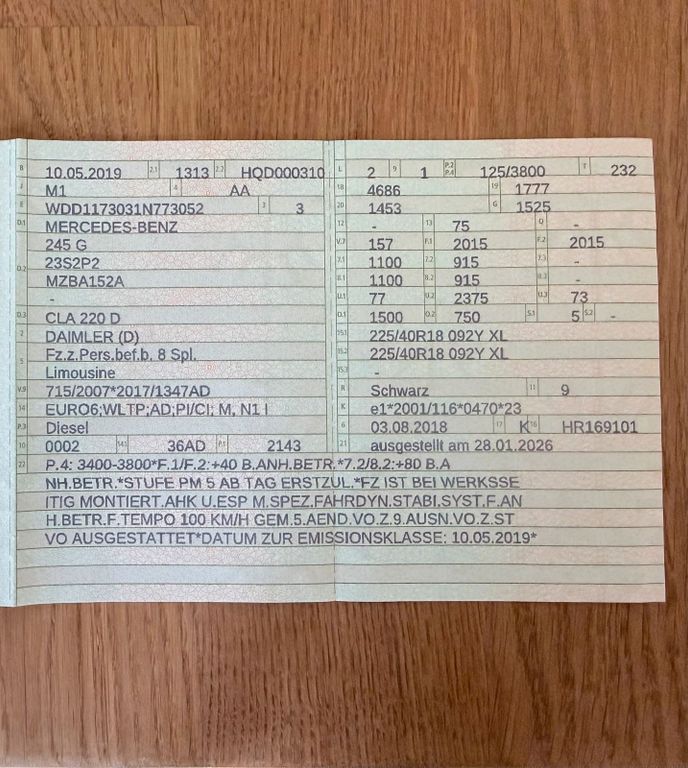 B 10.05.2019 2.1 1313 2.2 HQD000310
J M1 4 AA
E WDD1173031N773052 3 3
D.1 MERCEDES-BENZ
245 G
D.2 23S2P2
MZBA152A
-
D.3 CLA 220 D
2 DAIMLER (D)
5 Fz.z.Pers.bef.b. 8 Spl.
Limousine
V.9 715/2007*2017/1347AD
14 EURO6;WLTP;AD;PI/CI; M, N1 I
P.3 Diesel
10 0002 14.1 36AD P.1 2143
L 2 9 1 P.2 P.4 125/3800 T 232
18 4686 19 1777
20 1453 G 1525
12 - 13 75 Q -
V.7 157 F.1 2015 F.2 2015
7.1 1100 7.2 915 7.3 -
8.1 1100 8.2 915 8.3 -
U.1 77 U.2 2375 U.3 73
O.1 1500 O.2 750 S.1 5 S.2 -
15.1 225/40R18 092Y XL
15.2 225/40R18 092Y XL
15.3 -
R Schwarz 11 9
K e1*2001/116*0470*23
6 03.08.2018 17 K 16 HR169101
21 ausgestellt am 28.01.2026
22 P.4: 3400-3800*F.1/F.2:+40 B.ANH.BETR.*7.2/8.2:+80 B.A
NH.BETR.*STUFE PM 5 AB TAG ERSTZUL.*FZ IST BEI WERKSSE
ITIG MONTIERT.AHK U.ESP M.SPEZ.FAHRDYN.STABI.SYST.F.AN
H.BETR.F.TEMPO 100 KM/H GEM.5.AEND.VO.Z.9.AUSN.VO.Z.ST
VO AUSGESTATTET*DATUM ZUR EMISSIONSKLASSE: 10.05.2019*